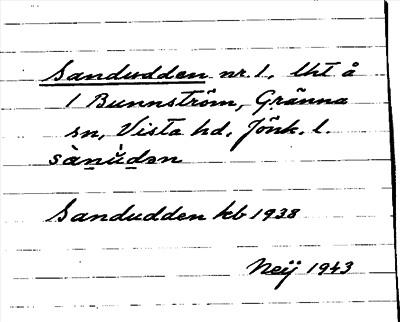 Sandudden nr. 1, lht å
1 Bunnström, Gränna
sn, Vista hd, Jönk. l.
sànùdən
Sandudden kb 1938
Neij 1943